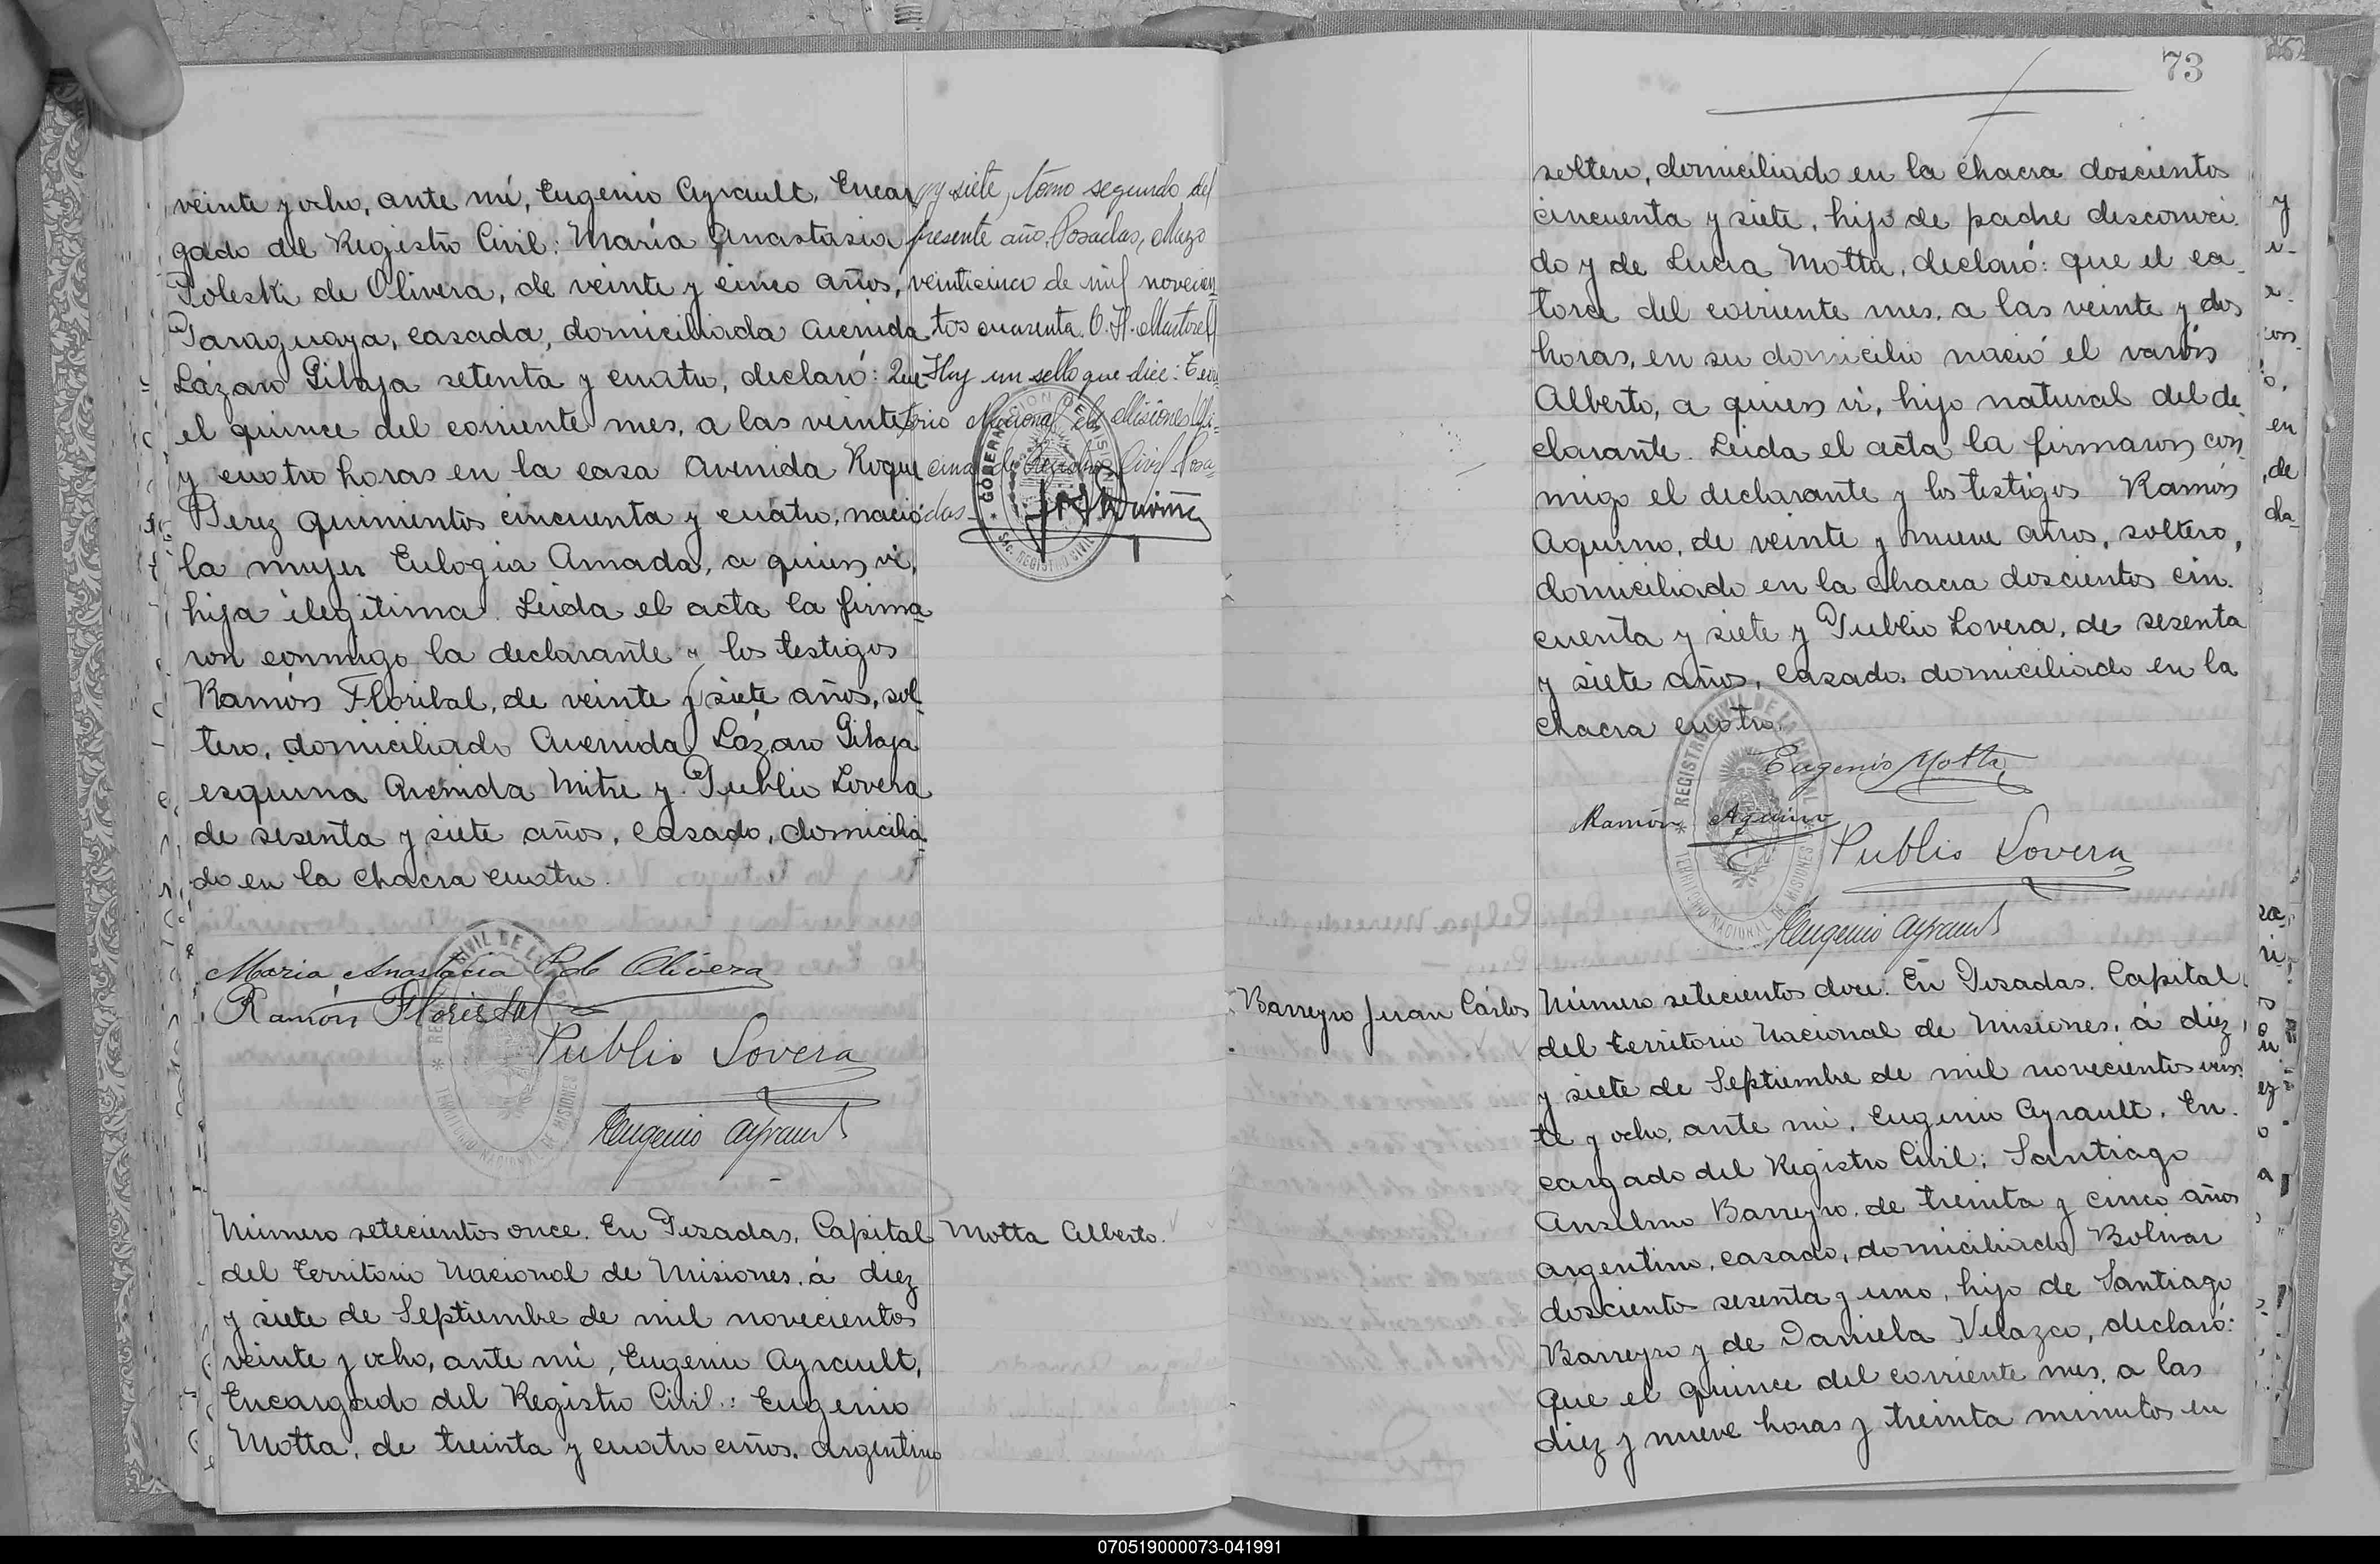 veinte y ocho, ante mí, Eugenio Ayrault, Encar
gado del Registro Civil: María Anastasia
Poleski de Olivera, de veinte y cinco años,
Paraguaya, casada, domiciliada Avenida
Lázaro Gibaja setenta y cuatro, declaró: Que
el quince del corriente mes, a las veinte
y cuatro horas en la casa Avenida Roque
Perez quinientos cincuenta y cuatro, nació
la mujer Eulogia Amada, a quien ví,
hija ilegítima. Leida el acta la firma
ron conmigo la declarante y los testigos
Ramón Floribal, de veinte y siete años, sol
tero, domiciliado Avenida Lázaro Gibaja
esquina Avenida Mitre y Publio Lovera
de sesenta y siete años, casado, domicilia
do en la chacra cuatro.
y siete, tomo segundo del
presente año. Posadas, Marzo
veinticinco de mil novecien
tos cuarenta. O. H. Martorell
Hay un sello que dice: Terri
torio Nacional de Misiones Ofi-
cina de Registro Civil Posa-
das
GOBERNACION DE MISIONES
SEC. REGISTRO CIVIL
María Anastacia P. de Olivera
Ramón Floribal
Publio Lovera
Eugenio Ayrault
REGISTRO CIVIL DE LA CAPITAL
TERRITORIO NACIONAL DE MISIONES
Motta Alberto.
Número setecientos once. En Posadas, Capital
del Territorio Nacional de Misiones, á diez
y siete de Septiembre de mil novecientos
veinte y ocho, ante mí, Eugenio Ayrault,
Encargado del Registro Civil: Eugenio
Motta, de treinta y cuatro años, argentino
73
soltero, domiciliado en la chacra doscientos
cincuenta y siete, hijo de padre desconoci
do y de Lucia Motta, declaró: que el ca
torce del corriente mes, a las veinte y dos
horas, en su domicilio nació el varón
Alberto, a quien ví, hijo natural del de
clarante. Leida el acta la firmaron con
migo el declarante y los testigos Ramón
Aquino, de veinte y nueve años, soltero,
domiciliado en la chacra doscientos cin
cuenta y siete y Publio Lovera, de sesenta
y siete años, casado, domiciliado en la
chacra cuatro.
Eugenio Motta
Ramón Aquino
Publio Lovera
Eugenio Ayrault
REGISTRO CIVIL DE LA CAPITAL
TERRITORIO NACIONAL DE MISIONES
Barreyro Juan Cárlos
Número setecientos doce. En Posadas, Capital
del Territorio Nacional de Misiones, á diez
y siete de Septiembre de mil novecientos vein
te y ocho, ante mi, Eugenio Ayrault, En
cargado del Registro Civil: Santiago
Anselmo Barreyro, de treinta y cinco años
argentino, casado, domiciliado Bolivar
doscientos sesenta y uno, hijo de Santiago
Barreyro y de Daniela Velazco, declaró:
Que el quince del corriente mes, a las
diez y nueve horas y treinta minutos en
070519000073-041991